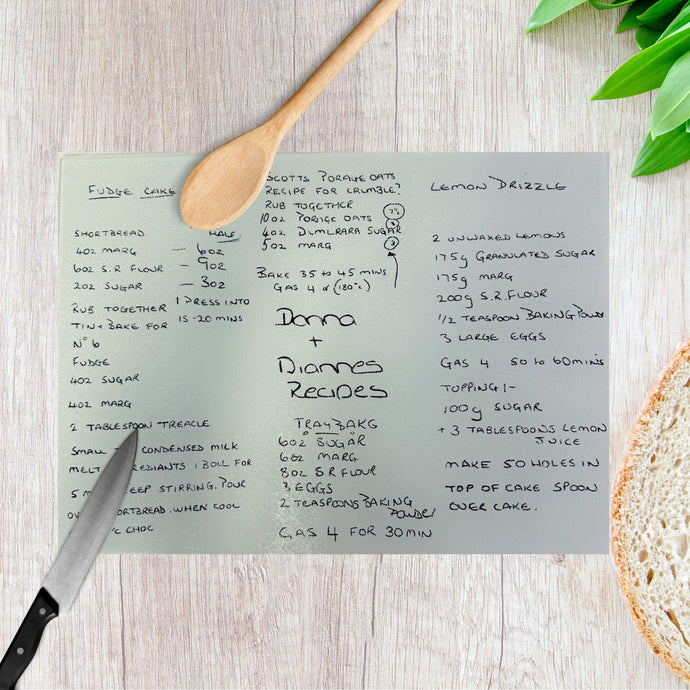 FUDGE CAKE
SHORTBREAD HALF
4OZ MARG — 6OZ
6OZ S.R FLOUR — 9OZ
2OZ SUGAR — 3OZ
RUB TOGETHER PRESS INTO
TIN BAKE FOR 15-20 MINS
Nº 6
FUDGE
4OZ SUGAR
4OZ MARG
2 TABLESPOON TREACLE
SMALL CONDENSED MILK
MELT BOIL FOR
5 STIRRING. POUR
WHEN COOL
CHOC
SCOTTS PORAGE OATS
RECIPE FOR CRUMBLE?
RUB TOGETHER
10OZ PORIGE OATS
4OZ DUMLRARA SUGAR
5OZ MARG
BAKE 35 TO 45 MINS
GAS 4 or (180°c)
Donna
+
Diannes
Recipes
TRAYBAKE
6OZ SUGAR
6OZ MARG
8OZ S.R FLOUR
3 EGGS
2 TEASPOONS BAKING
POWDER
GAS 4 FOR 30MIN
LEMON DRIZZLE
2 UNWAXED LEMONS
175g GRANULATED SUGAR
175g MARG
200g S.R.FLOUR
1/2 TEASPOON BAKING POWDR
3 LARGE EGGS
GAS 4 50 to 60mins
TOPPING:-
100g SUGAR
+ 3 TABLESPOONS LEMON
JUICE
MAKE 50 HOLES IN
TOP OF CAKE SPOON
OVER CAKE.